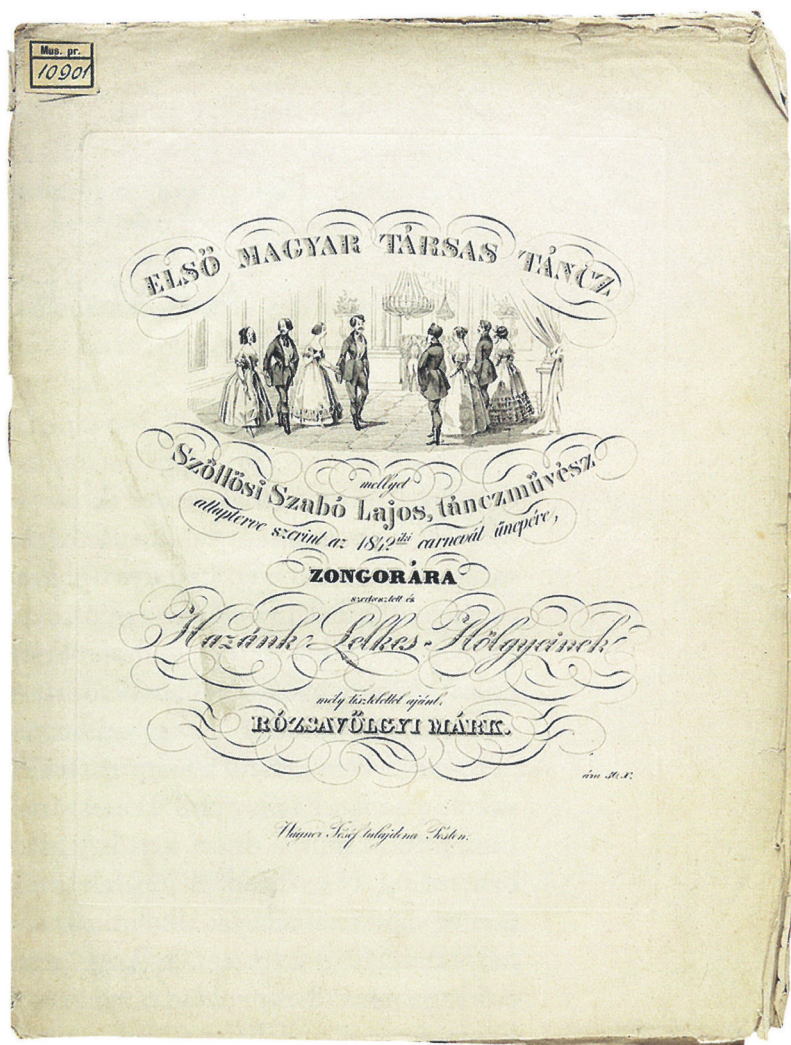 Mus. pr.
10901
ELSŐ MAGYAR TÁRSAS TÁNCZ
mellyet
Szőllősi Szabó Lajos, tánczművész
allapterve szerint az 1842iki carnevál ünepére,
ZONGORÁRA
szerkesztett és
Hazánk Lelkes-Hölgyeinek
mély tisztelettel ajánl,
RÓZSAVÖLGYI MÁRK.
ára
Wagner József tulajdona Pesten.